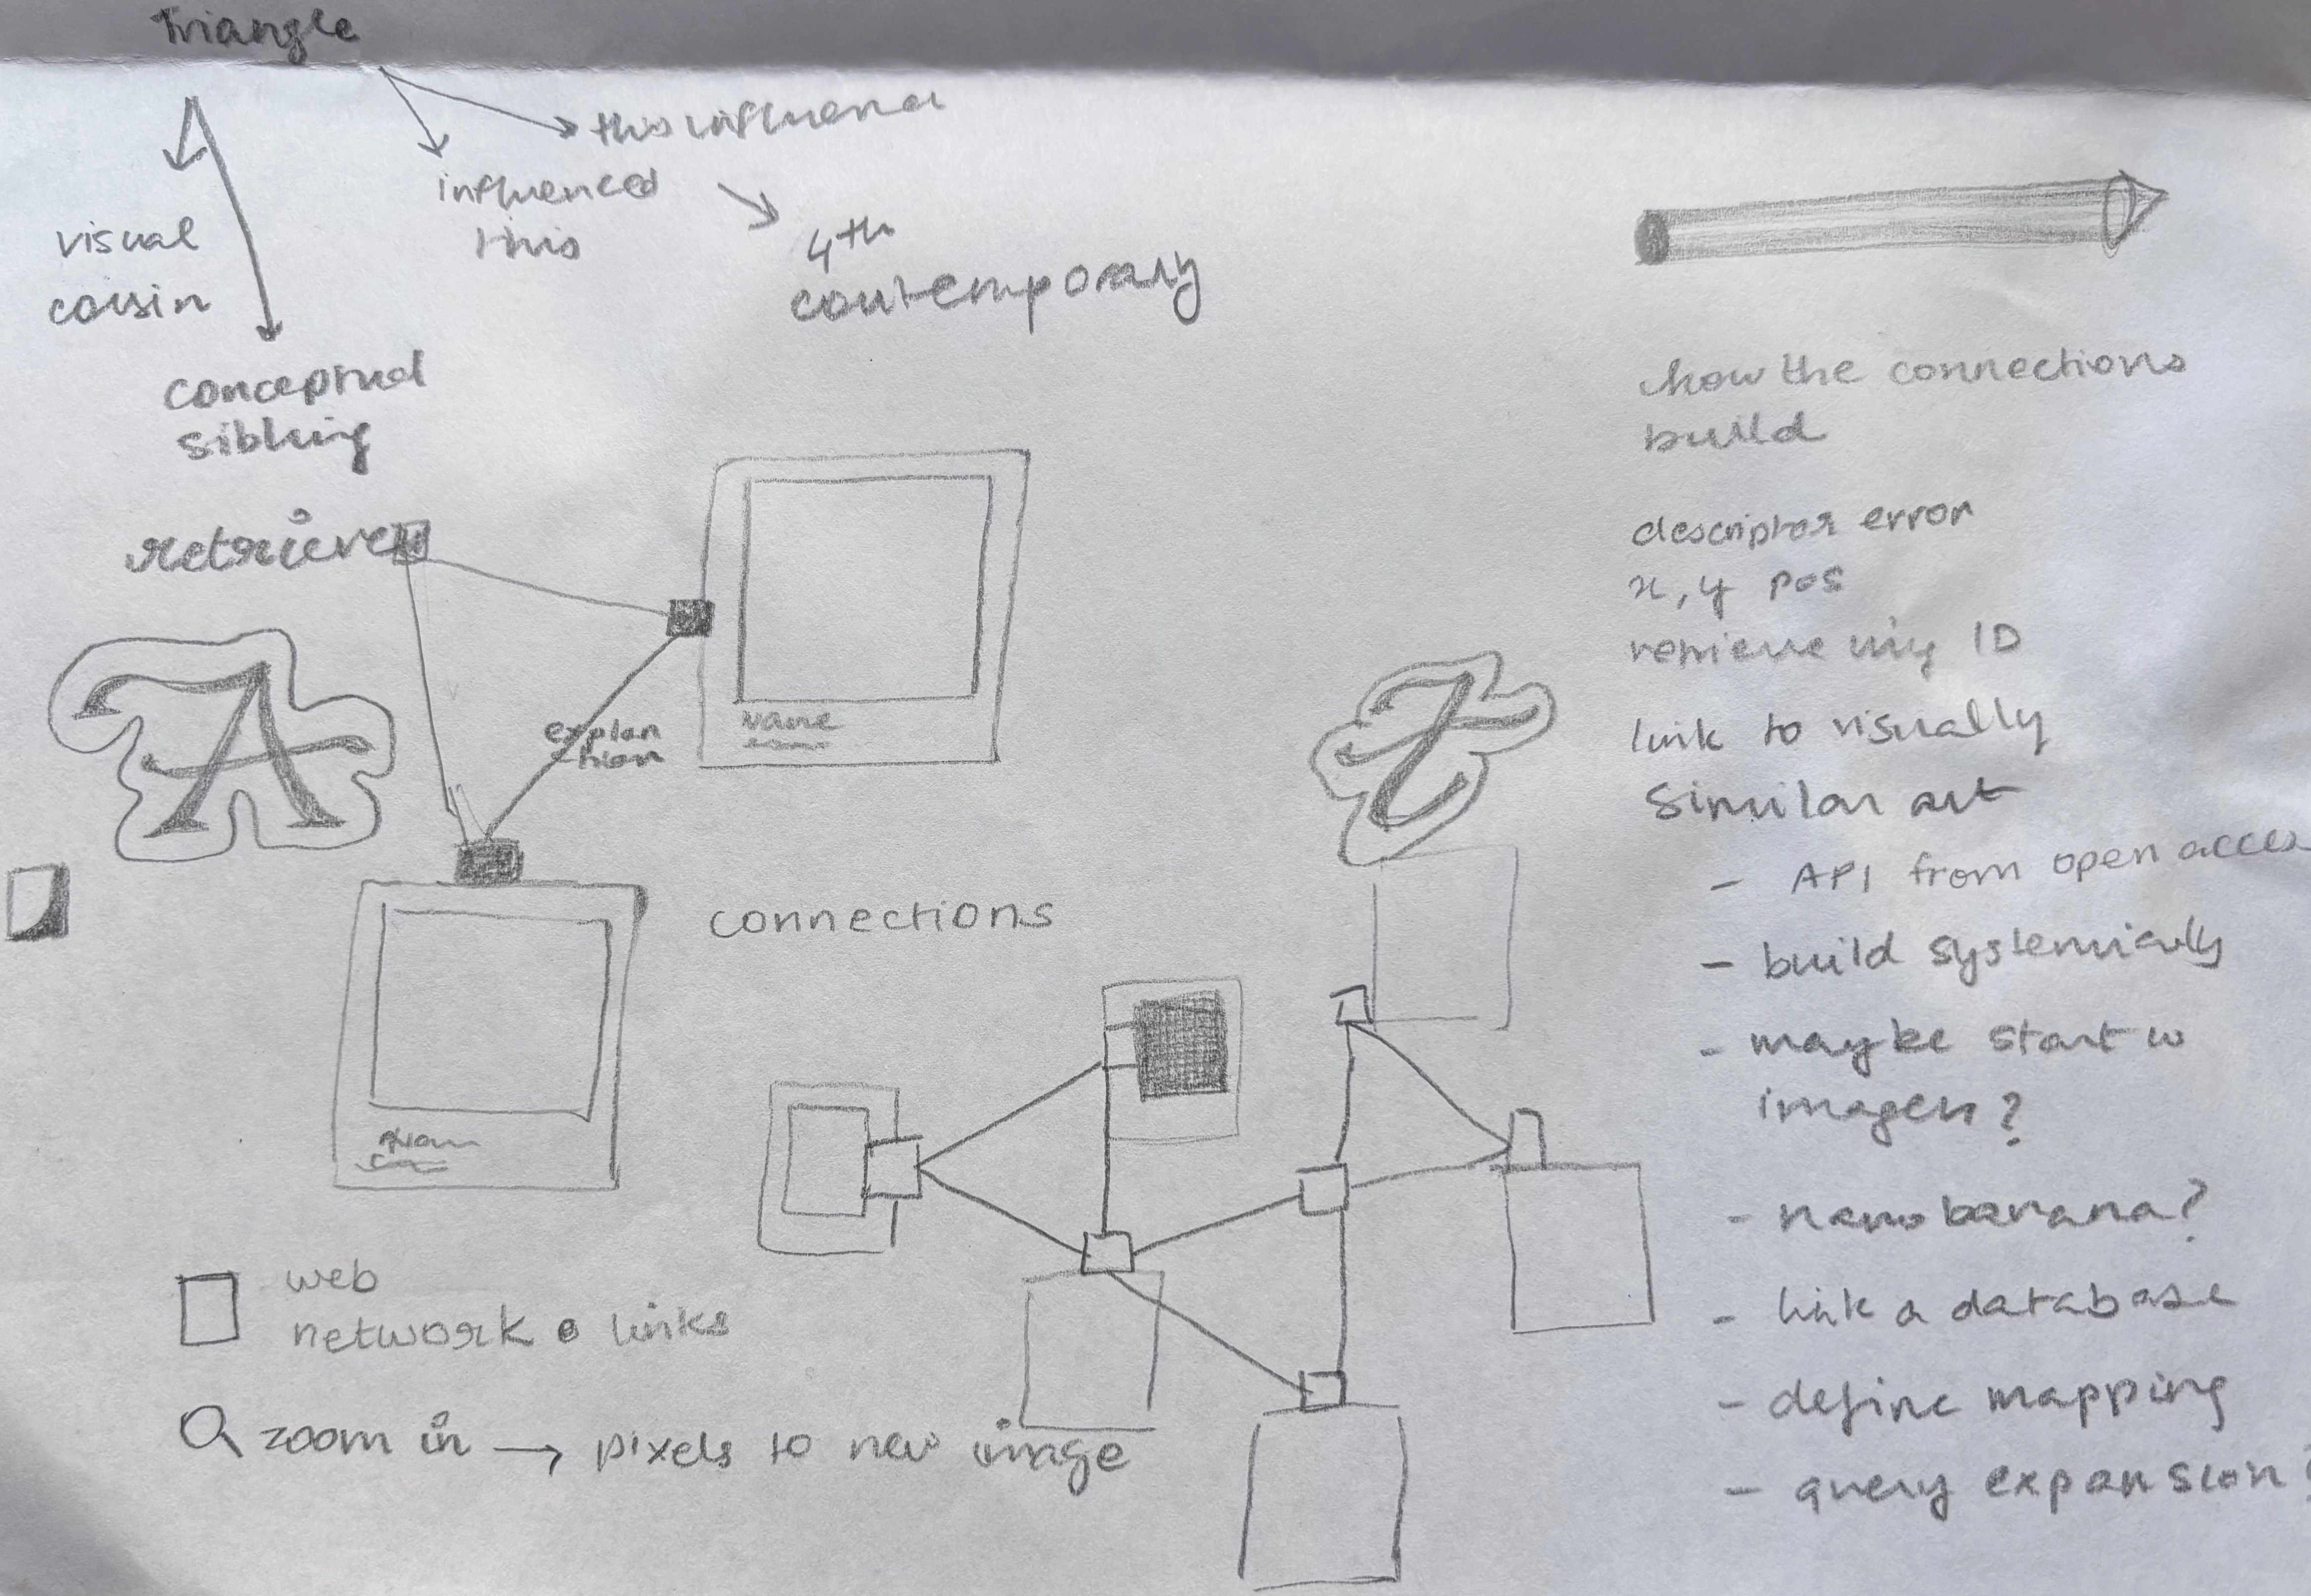 Triangle
this influence
influenced
this
4th
contemporary
visual
cousin
conceptual
sibling
retrieve
A
explan
tion
Name
connections
web
network links
zoom in → pixels to new image
how the connections
build
descriptor error
x, y pos
retrieve img ID
link to visually
similar art
- API from open access
- build systemically
- maybe start w
imagen?
- nano banana?
- link a database
- define mapping
- query expansion?